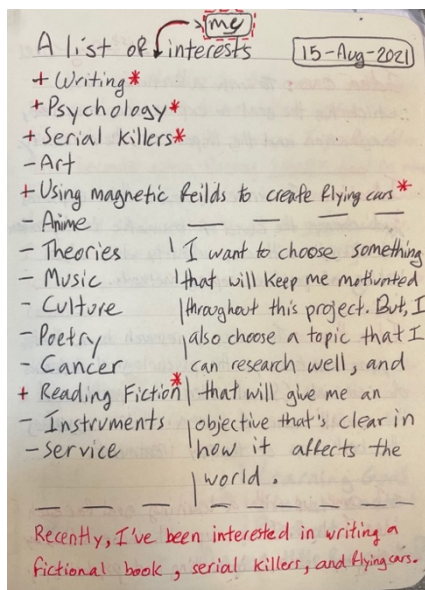 my
A list of interests
15-Aug-2021
+ Writing*
+ Psychology*
+ Serial Killers*
- Art
+ Using magnetic feilds to create flying cars *
- Anime
- Theories
- Music
- Culture
- Poetry
- Cancer
+ Reading Fiction*
- Instruments
- Service
I want to choose something
that will keep me motivated
throughout this project. But, I
also choose a topic that I
can research well, and
that will give me an
objective that's clear in
how it affects the
world.
Recently, I've been interested in writing a
fictional book, serial killers, and flying cars.